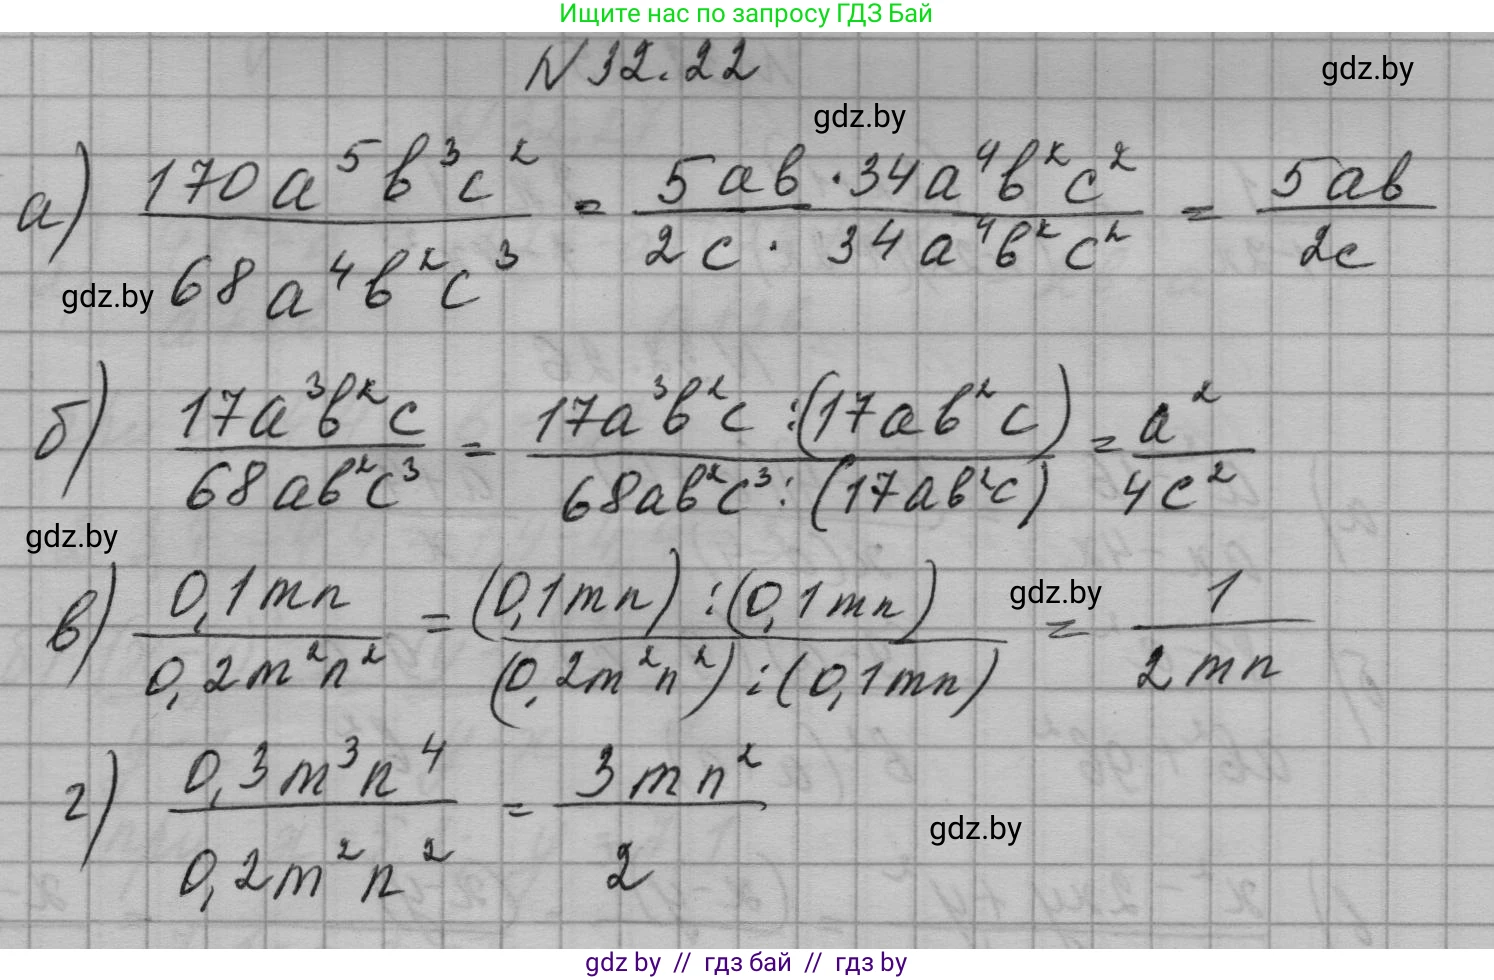 Ищите нас по запросу ГДЗ Бай
N 32.22
gdz.by
gdz.by
а) 170a⁵b³c² / 68a⁴b²c³ = 5ab · 34a⁴b²c² / 2c · 34a⁴b²c² = 5ab / 2c
gdz.by
б) 17a³b²c / 68ab²c³ = 17a³b²c : (17ab²c) / 68ab²c³ : (17ab²c) = a² / 4c²
gdz.by
gdz.by
в) 0,1mn / 0,2m²n² = (0,1mn) : (0,1mn) / (0,2m²n²) : (0,1mn) = 1 / 2mn
г) 0,3m³n⁴ / 0,2m²n² = 3mn² / 2
gdz.by
gdz by // гдз бай // гдз by